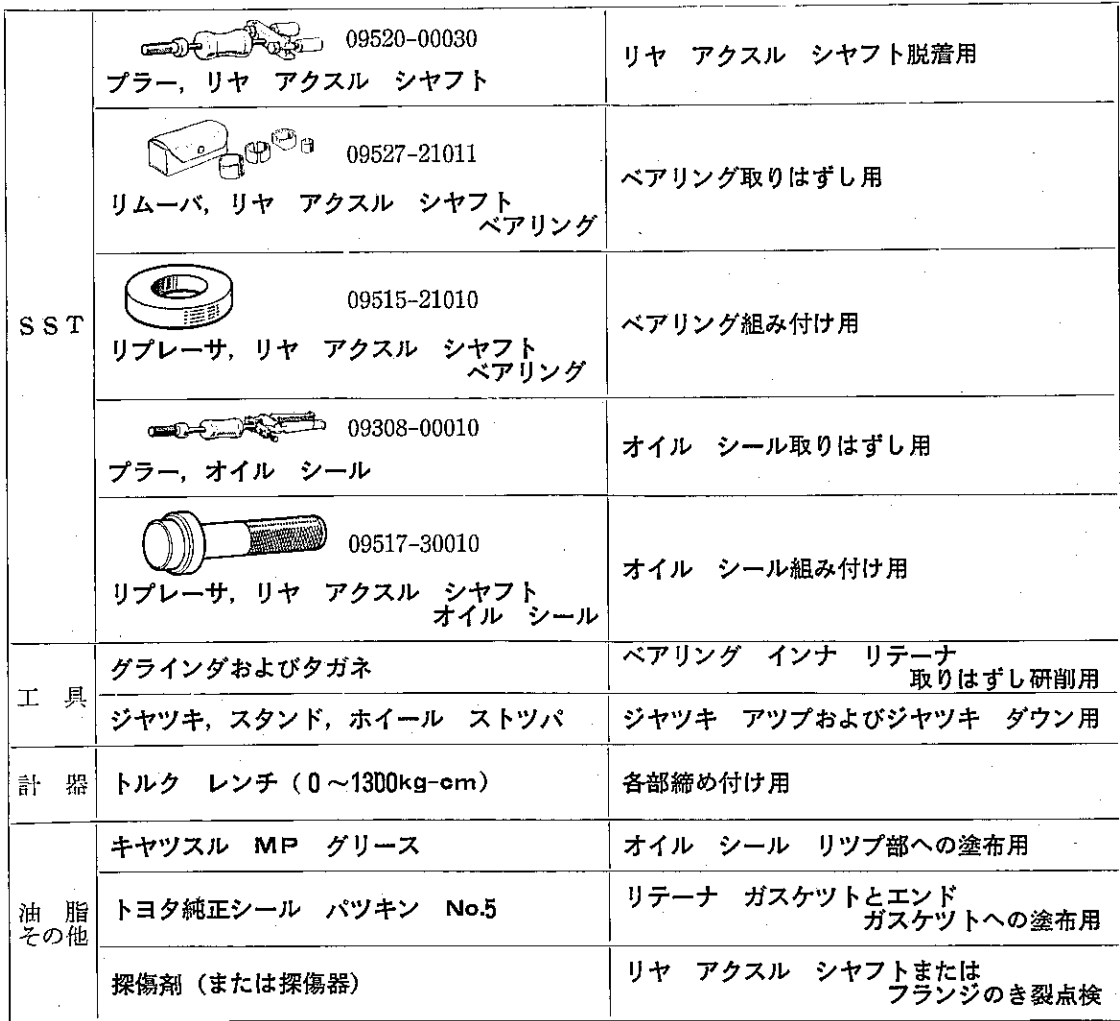 09520-00030
プラー，リヤ　アクスル　シヤフト
リヤ　アクスル　シヤフト脱着用
09527-21011
リムーバ，リヤ　アクスル　シヤフト
ベアリング
ベアリング取りはずし用
SST
09515-21010
リプレーサ，リヤ　アクスル　シヤフト
ベアリング
ベアリング組み付け用
09308-00010
プラー，オイル　シール
オイル　シール取りはずし用
09517-30010
リプレーサ，リヤ　アクスル　シヤフト
オイル　シール
オイル　シール組み付け用
工　具
グラインダおよびタガネ
ベアリング　インナ　リテーナ
取りはずし研削用
ジヤツキ，スタンド，ホイール　ストツパ
ジヤツキ　アツプおよびジヤツキ　ダウン用
計　器
トルク　レンチ（0～1300kg-cm）
各部締め付け用
油　脂
その他
キヤツスル　MP　グリース
オイル　シール　リツプ部への塗布用
トヨタ純正シール　パツキン　No.5
リテーナ　ガスケツトとエンド
ガスケツトへの塗布用
探傷剤（または探傷器）
リヤ　アクスル　シヤフトまたは
フランジのき裂点検